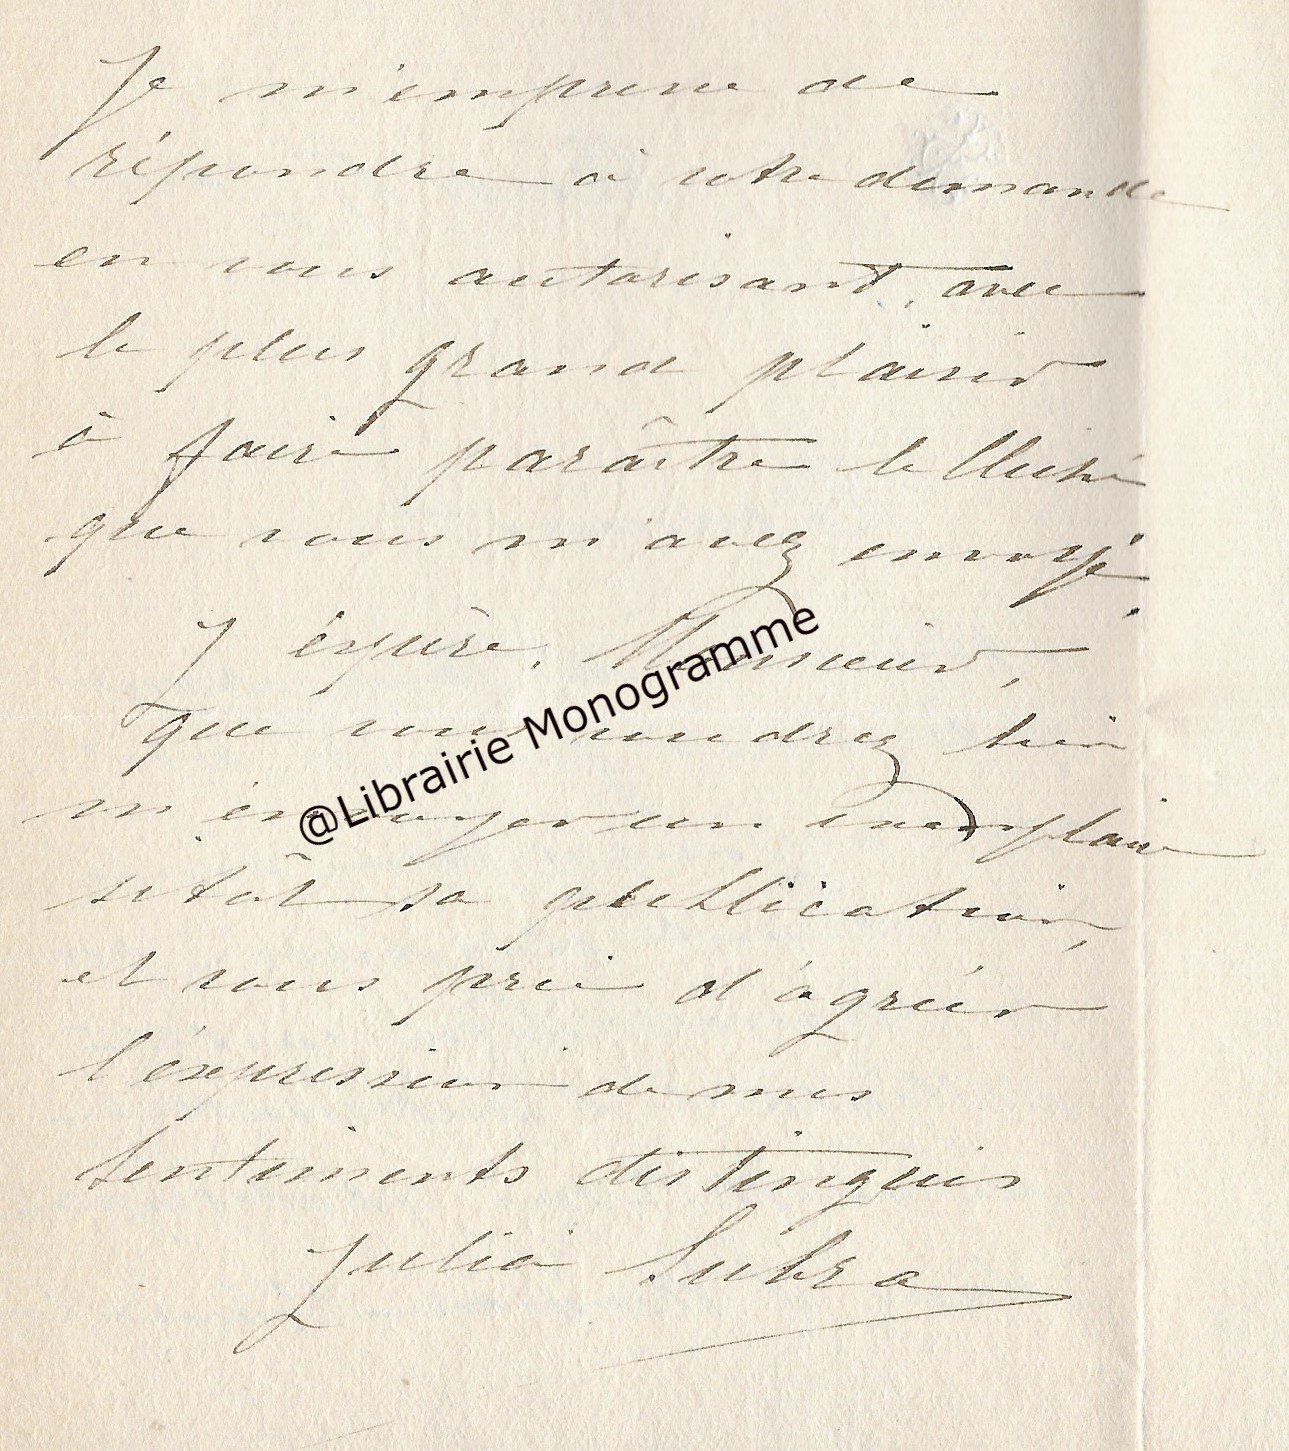 Je m'empresse de
répondre à votre demande
en vous autorisant, avec
le plus grand plaisir
à faire paraître le Cliché
que vous m'avez envoyé.
J'éspère, Monsieur,
que vous voudrez bien
m'envoyer un exemplaire
sitôt sa publication,
et vous prie d'agréer
l'éxpression de mes
Sentiments distingués
Julia Subra
@Librairie Monogramme